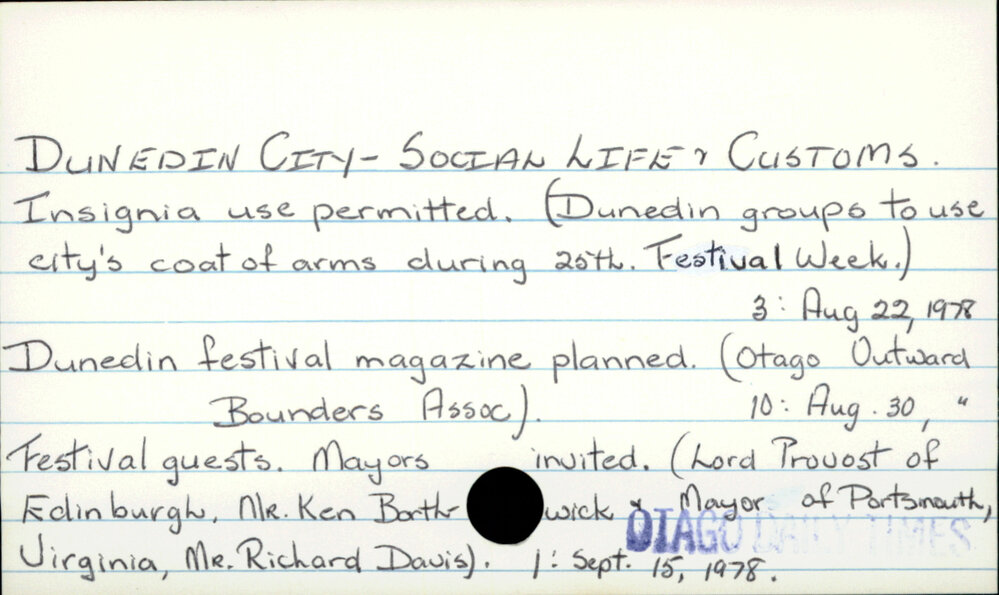 DUNEDIN CITY - SOCIAL LIFE & CUSTOMS.
Insignia use permitted. (Dunedin groups to use
city's coat of arms during 25th. Festival Week.)
3: Aug 22, 1978
Dunedin festival magazine planned. (Otago Outward
Bounders Assoc). 10: Aug. 30, "
Festival guests. Mayors invited. (Lord Provost of
Edinburgh, Mr. Ken Borth wick & Mayor of Portsmouth,
OTAGO DAILY TIMES
Virginia, Mr. Richard Davis). 1: Sept. 15, 1978.